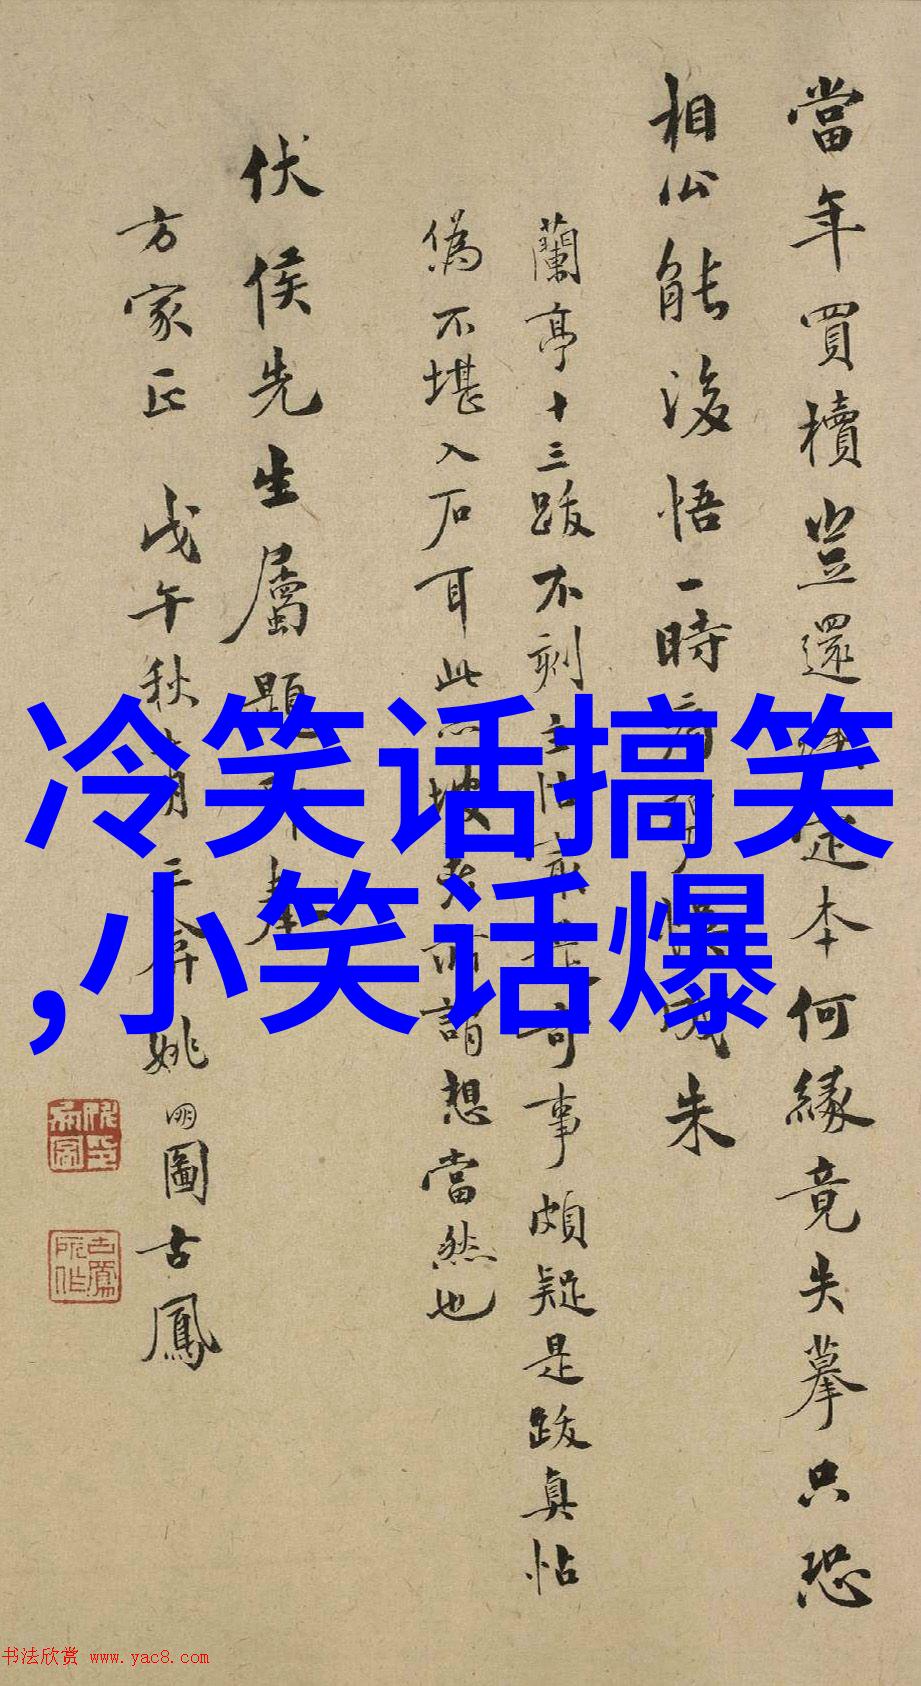 當年買櫝豈還
本何緣竟失摹只恐
相公能後悟一時
朱
蘭亭十三跋不刻
奇事頗疑是跋真帖
偽不堪入石耳此
謂想當然也
伏侯先生屬題
方家正 戊午秋
姚明圖古鳳
冷笑话搞笑
,小笑话爆
书法欣赏 www.yac8.com